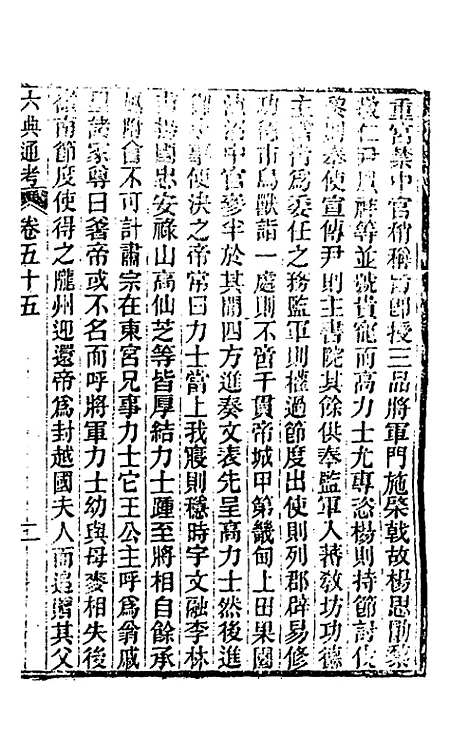 重宮禁中官稍稱旨卽授三品將軍門施棨戟故楊思勗黎
敬仁尹鳳祥等並號貴寵而高力士尤專恣楊則持節討伐
黎則奉使宣傳尹則主書院其餘供奉監軍入蕃敎坊功德
主當皆爲委任之務監軍則權過節度出使則列郡辟易修
功德市鳥獸詣一處則不啻千貫帝城甲第畿甸上田果園
池沼中官參半於其間四方進奏文表先呈高力士然後進
御小事便決之帝常曰力士當上我寢則穩時宇文融李林
甫楊國忠安祿山高仙芝等皆厚結力士踵至將相自餘承
風附會不可計肅宗在東宮兄事力士它王公主呼爲翁戚
里諸家尊曰爹帝或不名而呼將軍力士幼與母麥相失後
嶺南節度使得之隴州迎還帝爲封越國夫人而追贈其父
六典通考 卷五十五 二